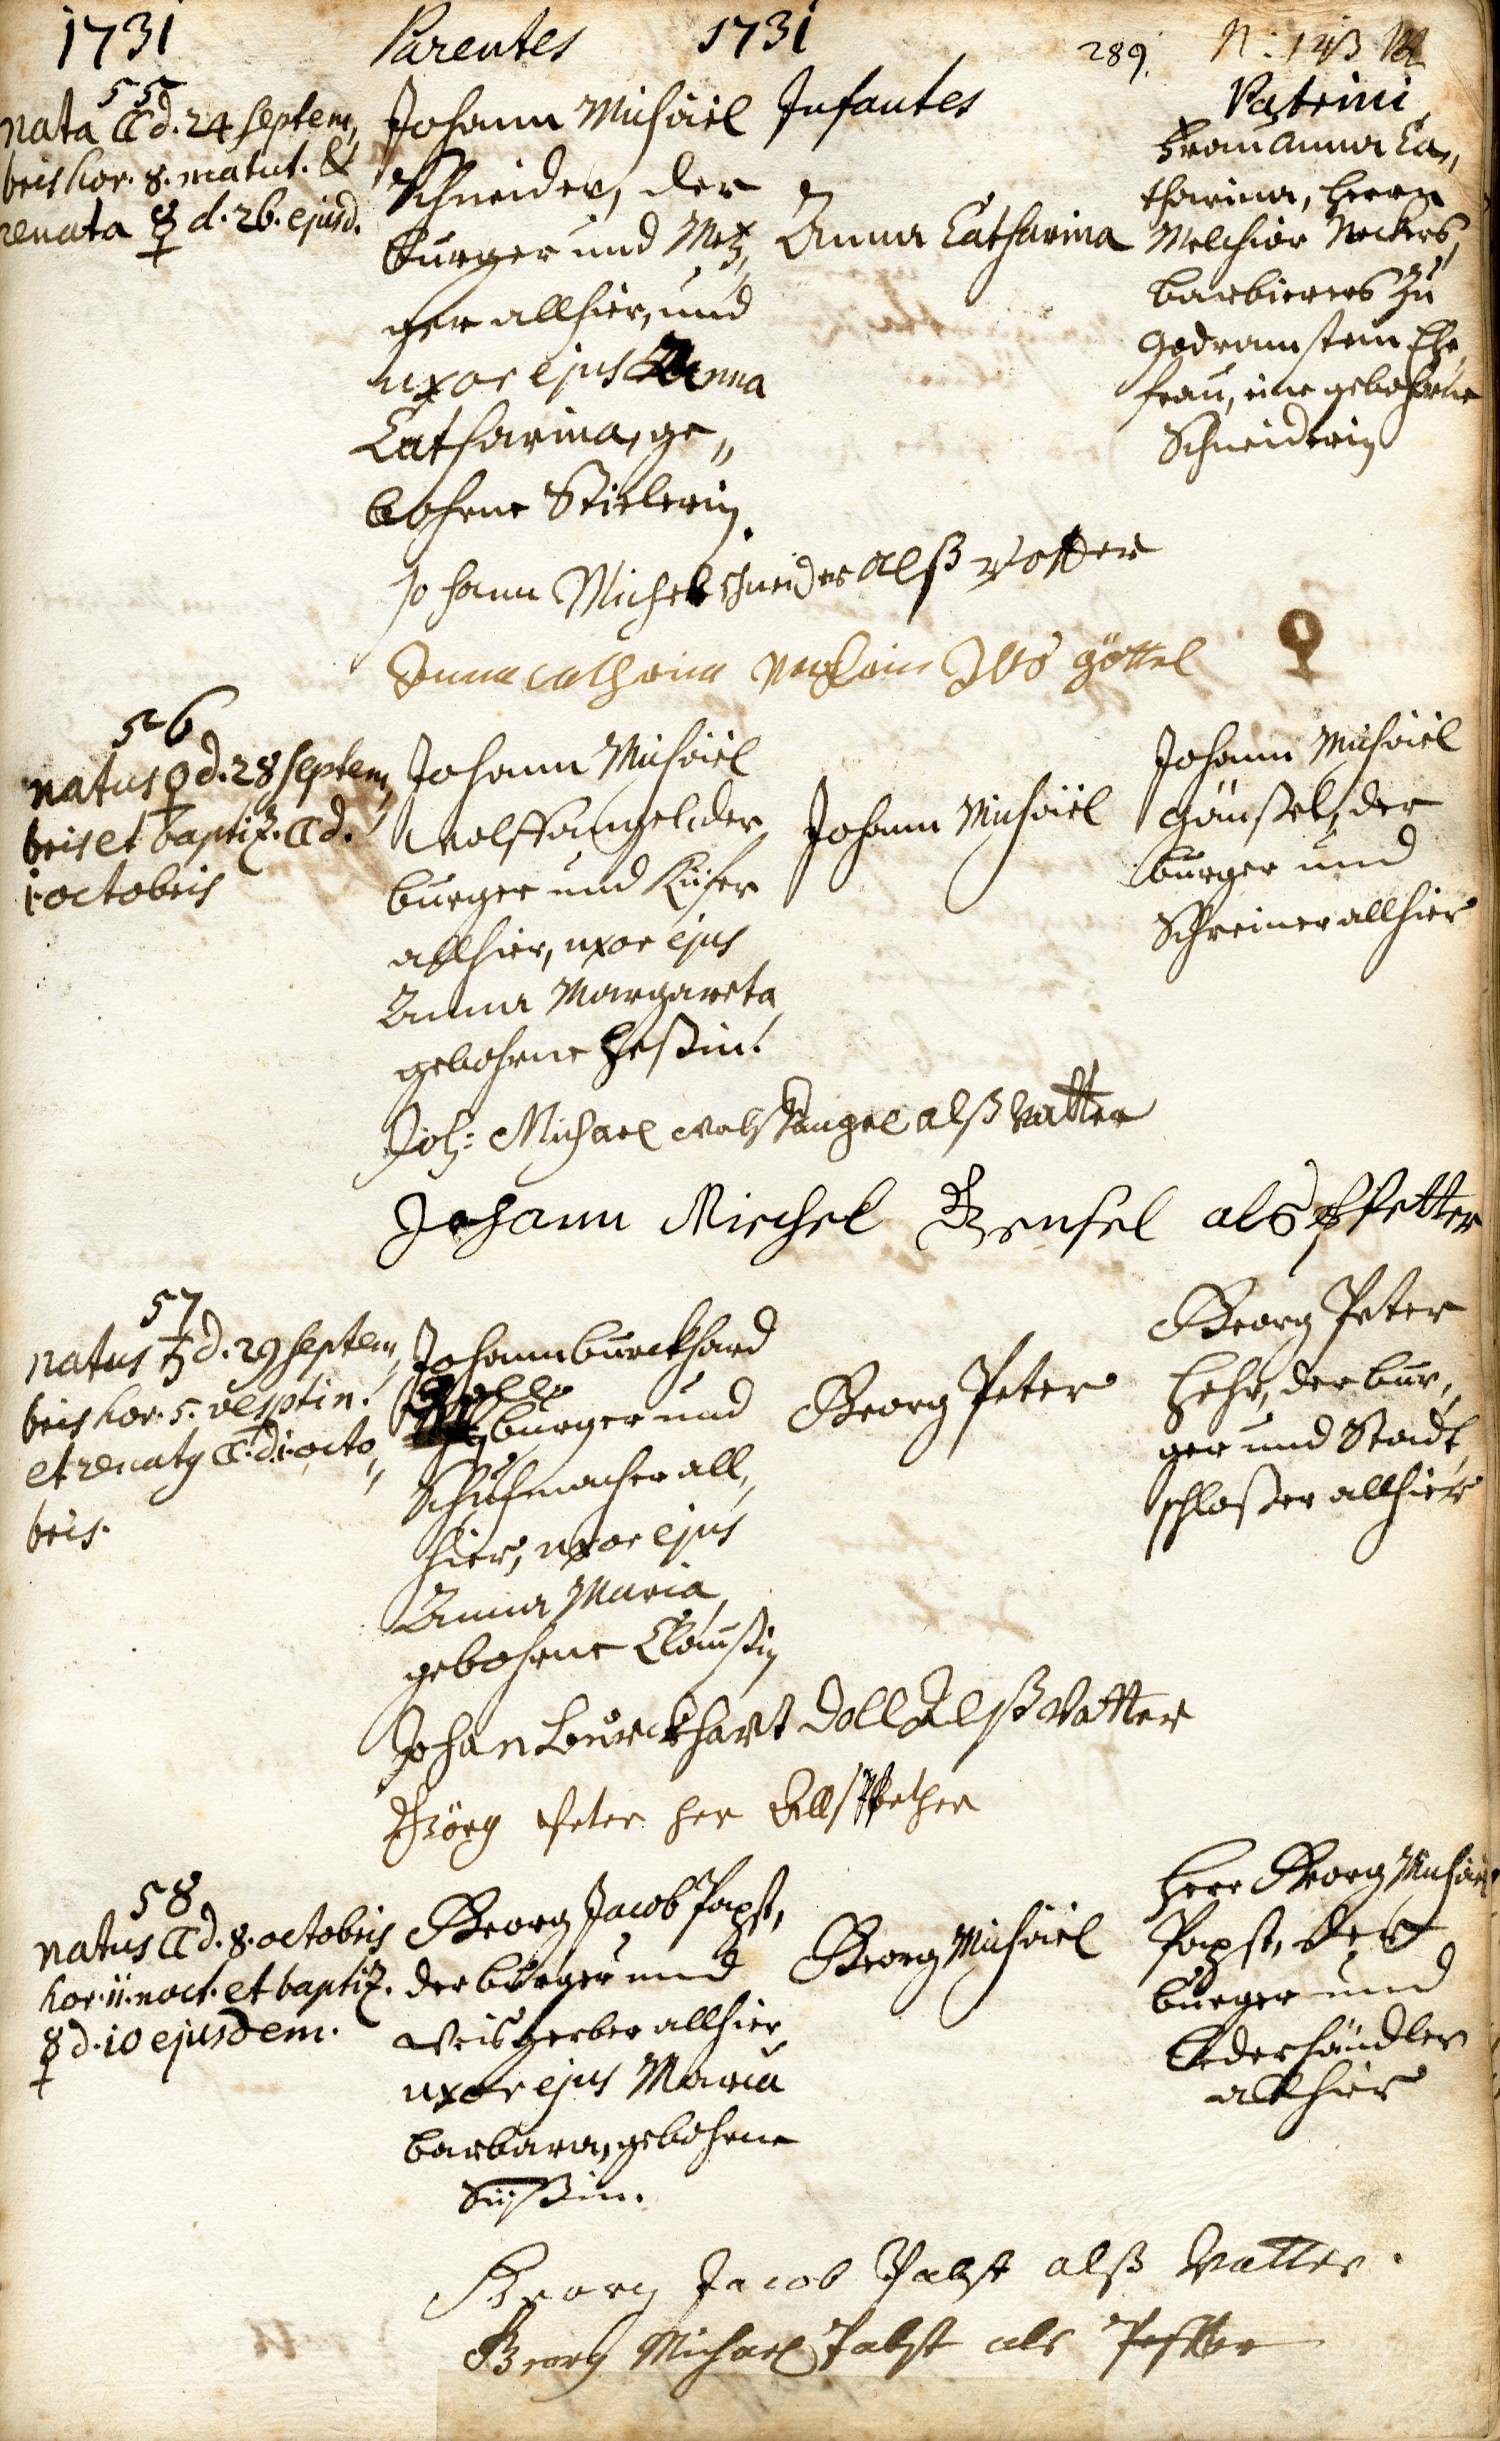 1731 Parentes 1731 289. N: 143
Infantes Patrini
55
nata ☾ d. 24 Septem„
bris hor. 8. matut. &
renata ☿ d. 26. ejusd.
Johann Michäel
Schneider, der
burger und Metz„
ger allhier, und
uxor ejus Anna
Catharina, ge„
bohrne Stielerin.
Anna Catharina
Frau Anna Ca„
tharina, Herrn
Melchior
barbierers zu
Godramstein Ehe
frau, eine gebohrne
Schneiderin
Johann Michel Schneider alß Vatter
Anna Catharina göttel
♀
56
natus ♀ d. 28 Septem„
bris et baptiz. ☾ d.
1. octobris
Johann Michäel
Wolffangel, der
burger und Küfer
allhier, uxor ejus
Anna Margareta
gebohrne Heßin.
Johann Michäel
Johann Michäel
Gänßel, der
burger und
Schreiner allhier
Joh: Michael Wolffangel alß Vatter
Johann Miechel Gensel als Pfetter
57
natus ♄ d. 29 Septem„
bris hor. 5. vesptin.
et renatꝯ ☾ d. 1. octo„
bris.
Johann burckhard
Doll
burger und
Schuhmacher all„
hier, uxor ejus
Anna Maria
gebohrne Claußin
Georg Peter
Georg Peter
Hehr, der bur„
ger und Stadt
schloßer allhier
Johan Burckhart Doll Alß Vatter
Görg Peter Her Allß Pfether
58
natus ☾ d. 8. octobris
hor. 11. noct. et baptiz.
☿ d. 10 ejusdem.
Georg Jacob Papst,
der burger und
Weisgerber allhier
uxor ejus Maria
barbara, gebohrne
Süßin.
Georg Michäel
Herr Georg Michäel
Papst, der
burger und
Lederhändler
allhier
Georg Jacob Pabst alß Vatter.
Georg Michael Pabst als Pfetter